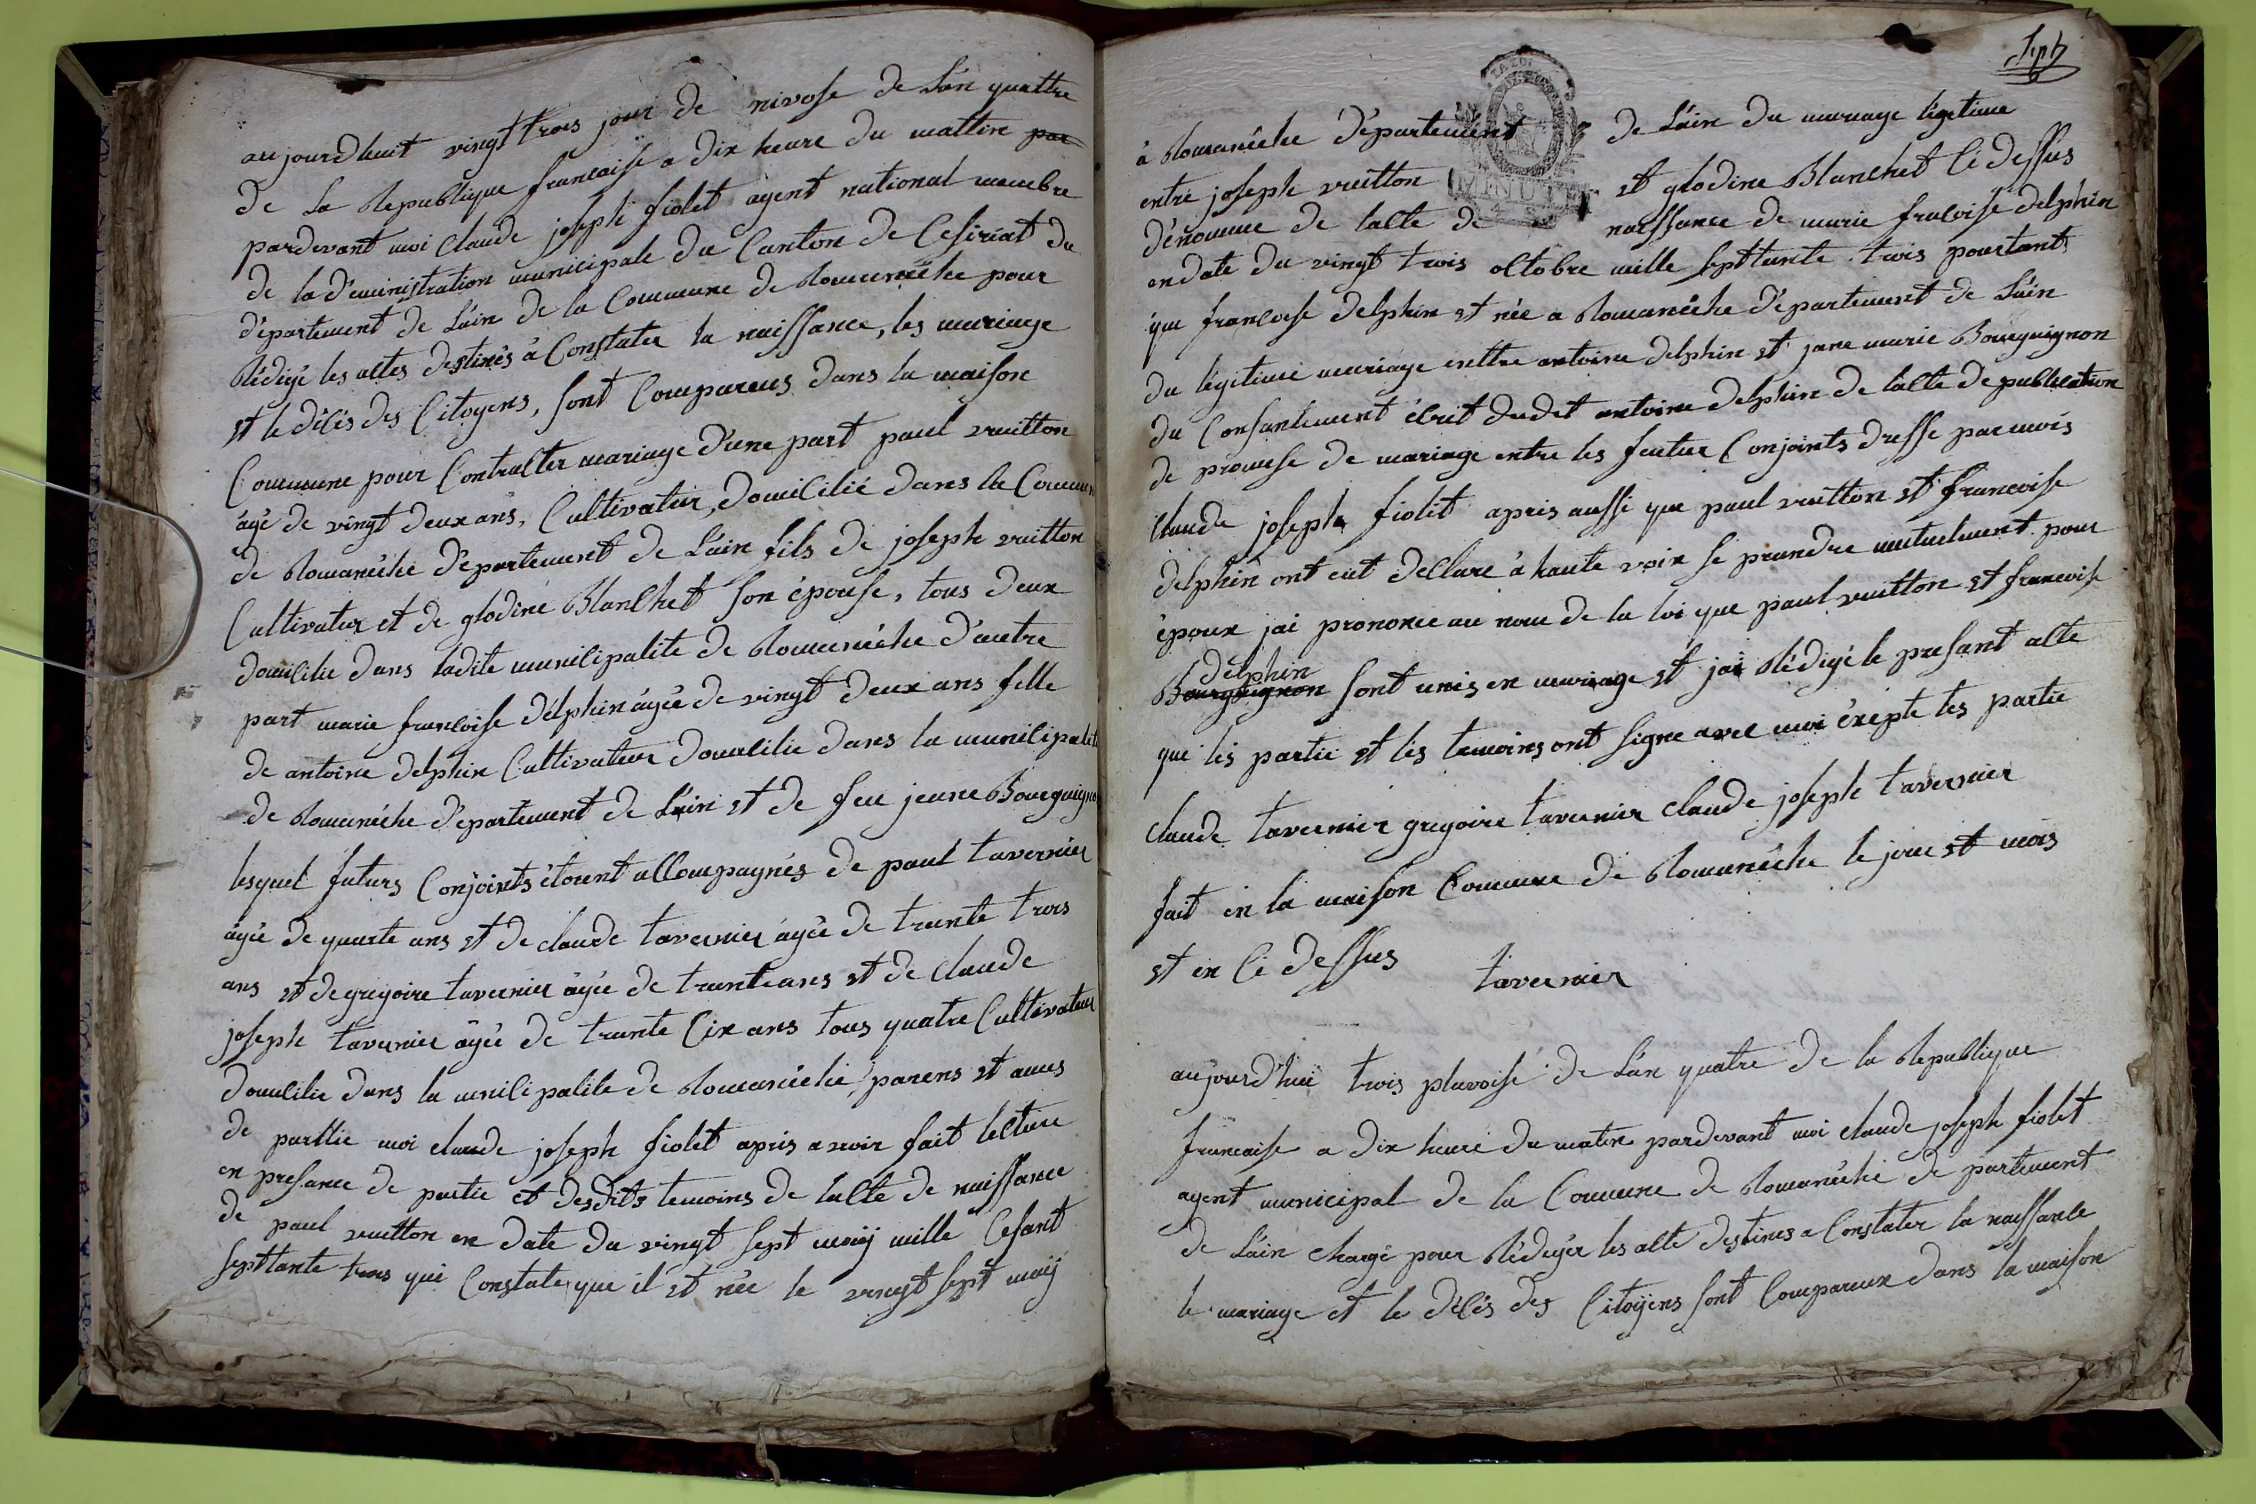 aujourdhuit vingt trois jour de nivose de Lân quattre
de La Republique francaise a dix heure du mattin par
pardevant moi Claude joseph fiolet agent national membre
de la d'eministration municipale du Canton de Cesiriat du
département de Láin de la Commune de Romanêche pour
Rédigé les actes destinés à Constater la naissance, les mariage
et le décés des Citoyens, sont Compareus dans la maison
Commune pour Contracter mariage d'une part paul vuitton
âgé de vingt deux ans, Cultivateur, domicilié dans la Commun
de Romanêche département de Láin fils de joseph vuitton
Cultivateur et de glodine Blanchet son épouse, tous deux
domicilie dans ladite municipalite de Romanêche d'autre
part marie francoise delphin âgée de vingt deux ans fille
de antoine delphin Cultivateur domicilie dans la municipalite
de Romanêche département de Láin et de feu jeune Bourguigno
lesquel futurs Conjoints étoient accompagnés de paul tavernier
âgé de quarte ans et de claude tavernier âgée de trante trois
ans et de gregoire tavernier âgée de trante ans et de Claude
joseph tavernier âgée de trante Cix ans tous quatre Cultivateur
domicilie dans la municipalite de Romanêche, parens et amis
de parttie moi claude joseph fiolet apris avoir fait lecture
en presance de partie et desdits temoins de lacte de naissance
de paul vuitton en date du vingt sept maij mille Cesant
septtante trois qui Constate que il et née le vingt sept maij
Sept
à Romanêche département de Láin du mariage légetime
entre joseph vuitton et glodine Blanchet Ci dessus
dénomme de lacte de naissance de marie francoise delphin
en date du vingt trois octobre mille septtante trois pourtant
que francoise delphin et née a Romanêche département de Láin
du légitime mariage enttre antoine delphin et jane marie Bourguignon
du Consantement écrit dudet antoine delphin de lacte de publication
de promese de mariage entre les feutur Conjoints dresse par mois
Claude joseph fiolet apris aussi que paul vuitton et francoise
delphin ont eut declare à haute voix se prandre mutuelment pour
époux jai prononce au nom de la loi que paul vuitton et francoise
delphin
Bourguignon sont unis en mariage et jai Rédigé le presant acte
que les partie et les temoins ont signe avec moi éxepte les partie
claude tavernier gregoire tavernier claude joseph tavernier
fait en la maison Commune de Romanêche le jour et mois
et en Ci dessus tavernier
aujourd'hui trois pluvoise de Lán quatre de la Republique
francaise a dix heure du matin pardevant moi claude joseph fiolet
agent municipal de la Commune de Romanêche de partement
de Láin chargé pour Rédegér les acte destines a Constater la naissance
le mariage et le décés des Citoÿens sont Compareux dans la maison